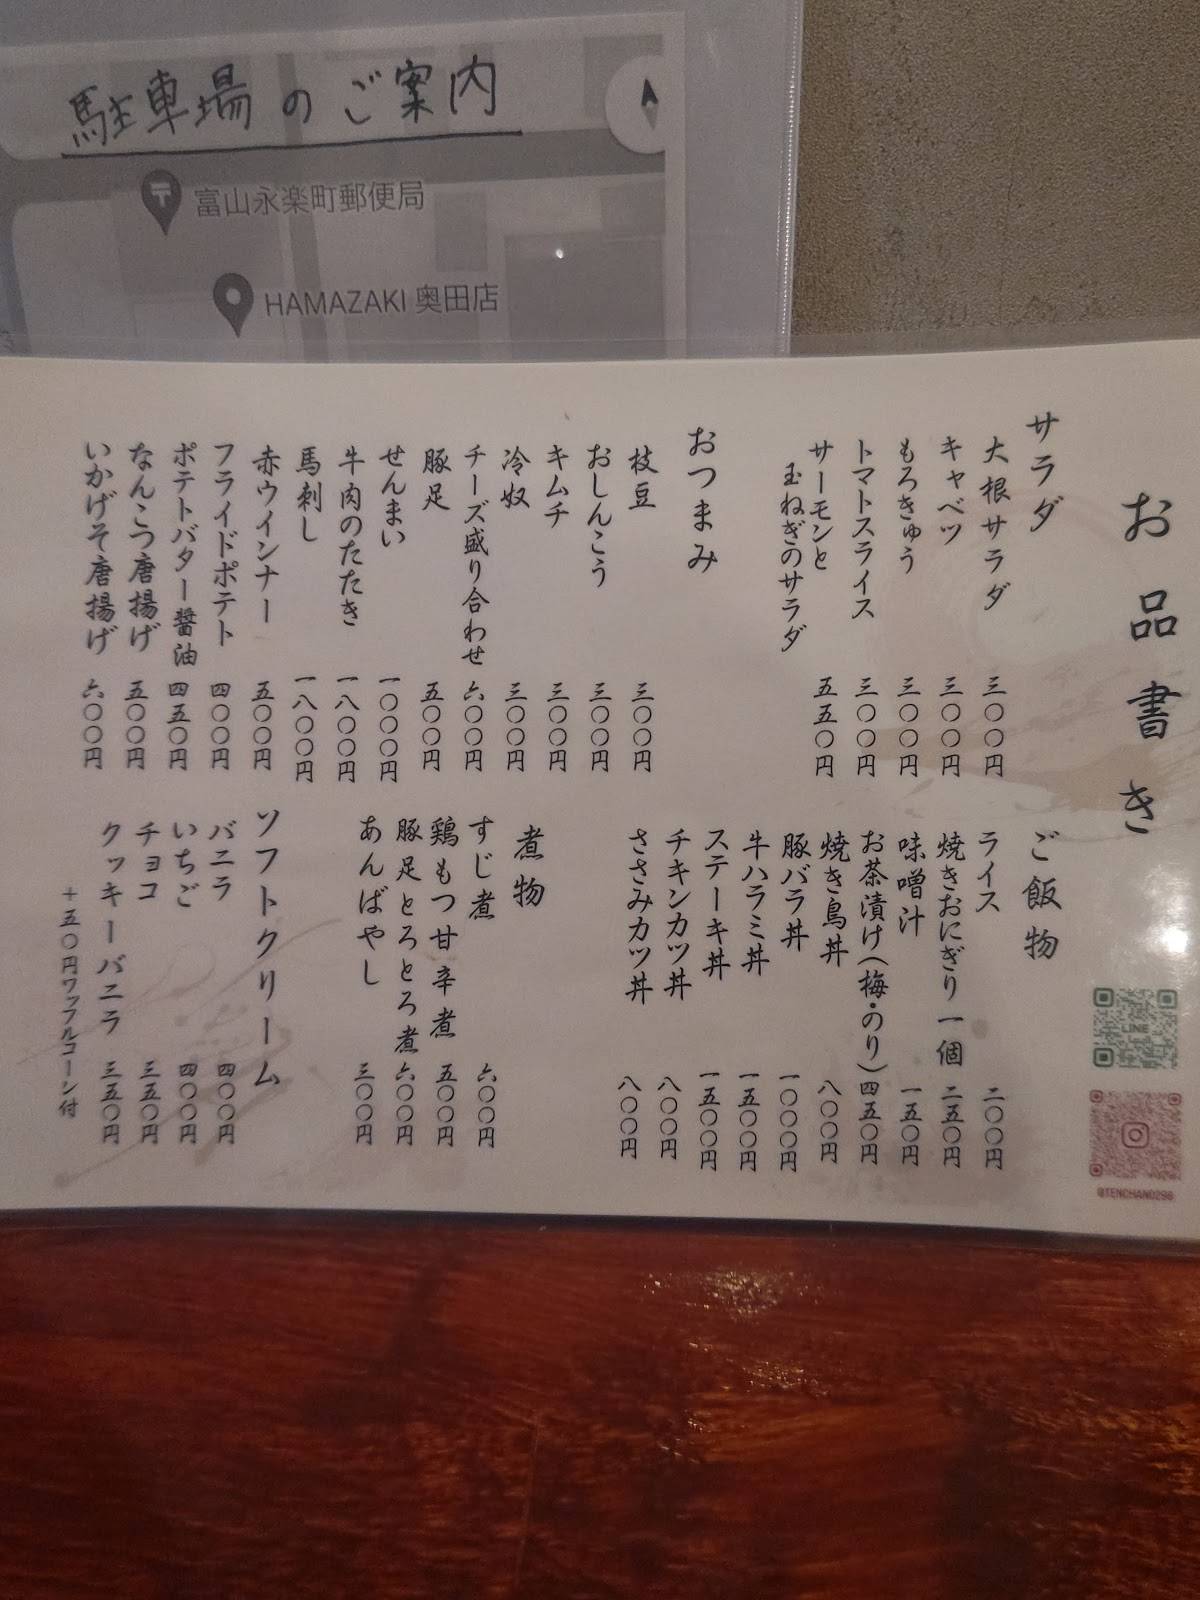 駐車場のご案内
富山永楽町郵便局
HAMAZAKI 奥田店
お品書き
サラダ
大根サラダ 三〇〇円
キャベツ 三〇〇円
もろきゅう 三〇〇円
トマトスライス 三〇〇円
サーモンと
玉ねぎのサラダ 五五〇円
おつまみ
枝豆 三〇〇円
おしんこう 三〇〇円
キムチ 三〇〇円
冷奴 三〇〇円
チーズ盛り合わせ 六〇〇円
豚足 五〇〇円
せんまい 一〇〇〇円
牛肉のたたき 一八〇〇円
馬刺し 一八〇〇円
赤ウインナー 五〇〇円
フライドポテト 四〇〇円
ポテトバター醤油 四五〇円
なんこつ唐揚げ 五〇〇円
いかげそ唐揚げ 六〇〇円
ご飯物
ライス 二〇〇円
焼きおにぎり 一個 二五〇円
味噌汁 一五〇円
お茶漬け(梅・のり) 四五〇円
焼き鳥丼 八〇〇円
豚バラ丼 一〇〇〇円
牛ハラミ丼 一五〇〇円
ステーキ丼 一五〇〇円
チキンカツ丼 八〇〇円
ささみカツ丼 八〇〇円
煮物
すじ煮 六〇〇円
鶏もつ甘辛煮 五〇〇円
豚足とろとろ煮 六〇〇円
あんばやし 三〇〇円
ソフトクリーム
バニラ 四〇〇円
いちご 四〇〇円
チョコ 三五〇円
クッキーバニラ 三五〇円
+五〇円ワッフルコーン付
LINE
@TENCHAN0298